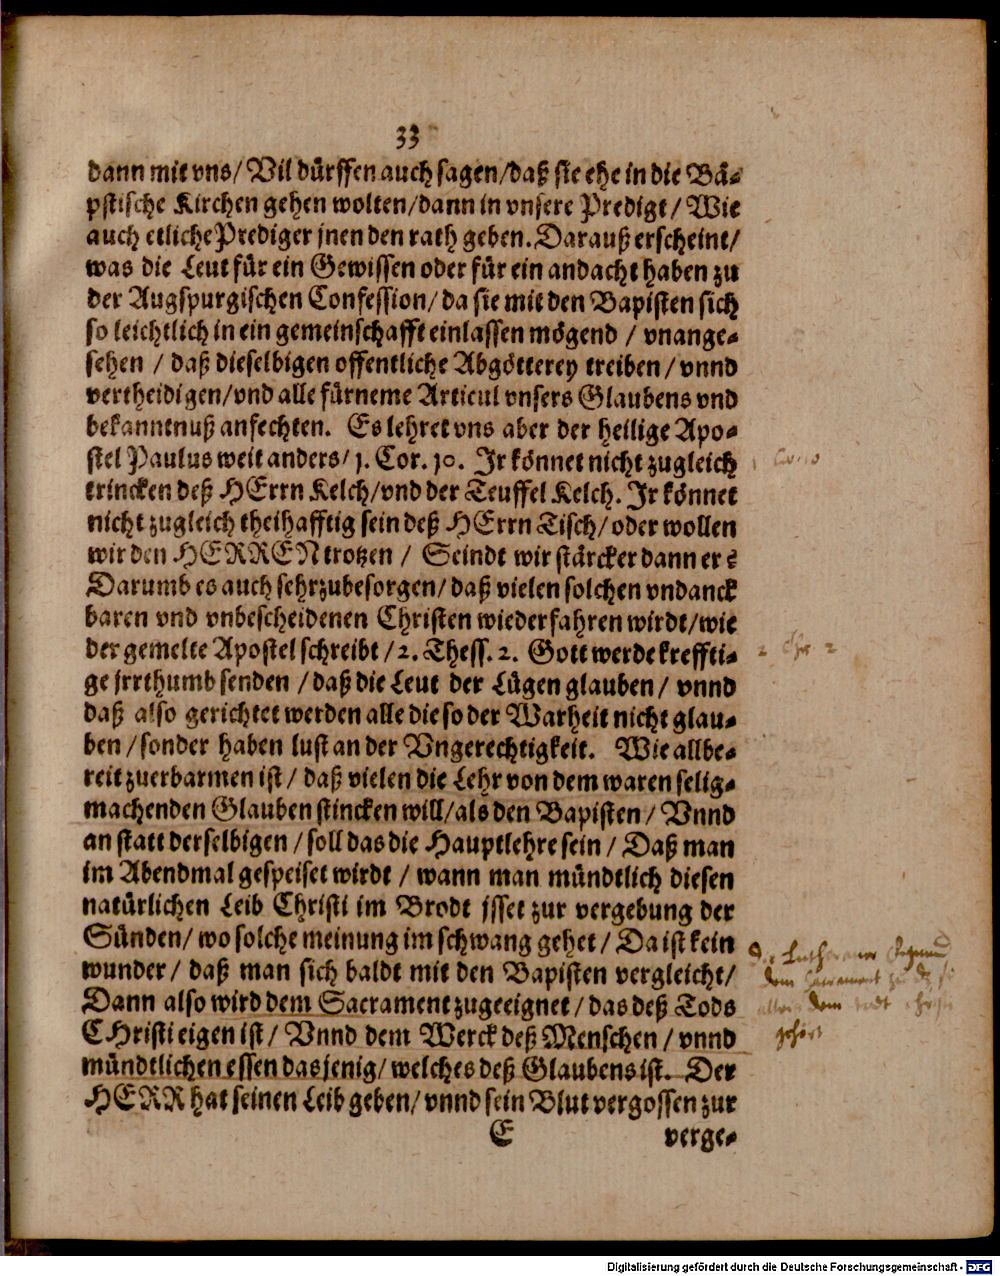 33
dann mit vns/ Vil dürffen auch sagen/daß sie ehe in die Bä-
pstische Kirchen gehen wolten/dann in vnsere Predigt/ Wie
auch etliche Prediger jnen den rath geben. Darauß erscheint/
was die Leut für ein Gewissen oder für ein andacht haben zu
der Augspurgischen Confession/ da sie mit den Bapisten sich
so leichtlich in ein gemeinschafft einlassen mögend / vnange-
sehen / daß dieselbigen offentliche Abgötterey treiben/ vnnd
vertheidigen/vnd alle fürneme Articul vnsers Glaubens vnd
bekanntnuß anfechten. Es lehret vns aber der heilige Apo-
stel Paulus weit anders/ 1. Cor. 10. Jr könnet nicht zugleich
trincken deß HErrn Kelch/vnd der Teuffel Kelch. Jr könnet
nicht zugleich theihafftig sein deß HErrn Tisch/ oder wollen
wir den HERREN trotzen / Seindt wir stärcker dann er?
Darumb es auch sehr zubesorgen/ daß vielen solchen vndanck
baren vnd vnbescheidenen Christen wiederfahren wirdt/wie
der gemelte Apostel schreibt /2. Thess. 2. Gott werde kreffti-
ge jrrthumb senden /daß die Leut der Lügen glauben/ vnnd
daß also gerichtet werden alle die so der Warheit nicht glau-
ben /sonder haben lust an der Vngerechtigkeit. Wie allbe-
reit zuerbarmen ist / daß vielen die Lehr von dem waren selig-
machenden Glauben stincken will/als den Bapisten / Vnnd
an statt derselbigen /soll das die Hauptlehre sein / Daß man
im Abendmal gespeiset wirdt / wann man mündtlich diesen
natürlichen Leib Christi im Brodt jsset zur vergebung der
Sünden/ wo solche meinung im schwang gehet/ Da ist kein
wunder/ daß man sich baldt mit den Bapisten vergleicht/
Dann also wird dem Sacrament zugeeignet/ das deß Tods
CHristi eigen ist/ Vnnd dem Werck deß Menschen / vnnd
mündtlichen essen das jenig/ welches deß Glaubens ist. Der
HERR hat seinen Leib geben/ vnnd sein Blut vergossen zur
E verge-
Digitalisierung gefördert durch die Deutsche Forschungsgemeinschaft - DFG